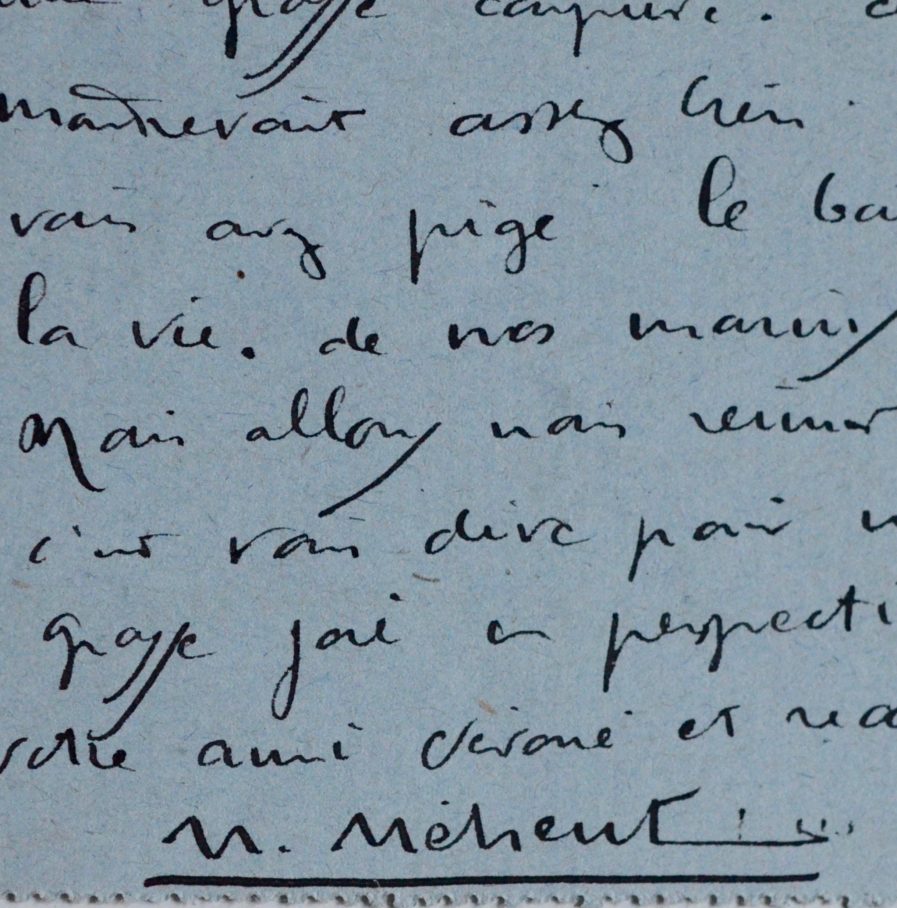 grosse coupure.
manœuvrait assez bien.
vous avez pigé le
la vie. de nos marins
Mais allons nous reunir
c'est vous dire pour
grosse joie en perspecti
votre ami dévoué et
M. Méheut